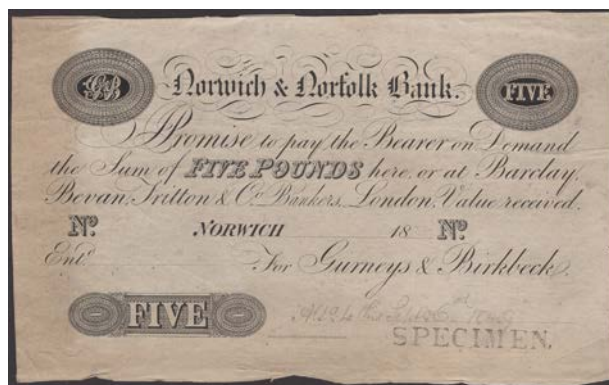 GB Norwich & Norfolk Bank. FIVE
I Promise to pay the Bearer on Demand
the Sum of FIVE POUNDS here, or at Barclay,
Bevan, Tritton & Co. Bankers, London, Value received.
No. NORWICH 18 No.
Entd. For Gurneys & Birkbeck.
FIVE
SPECIMEN.